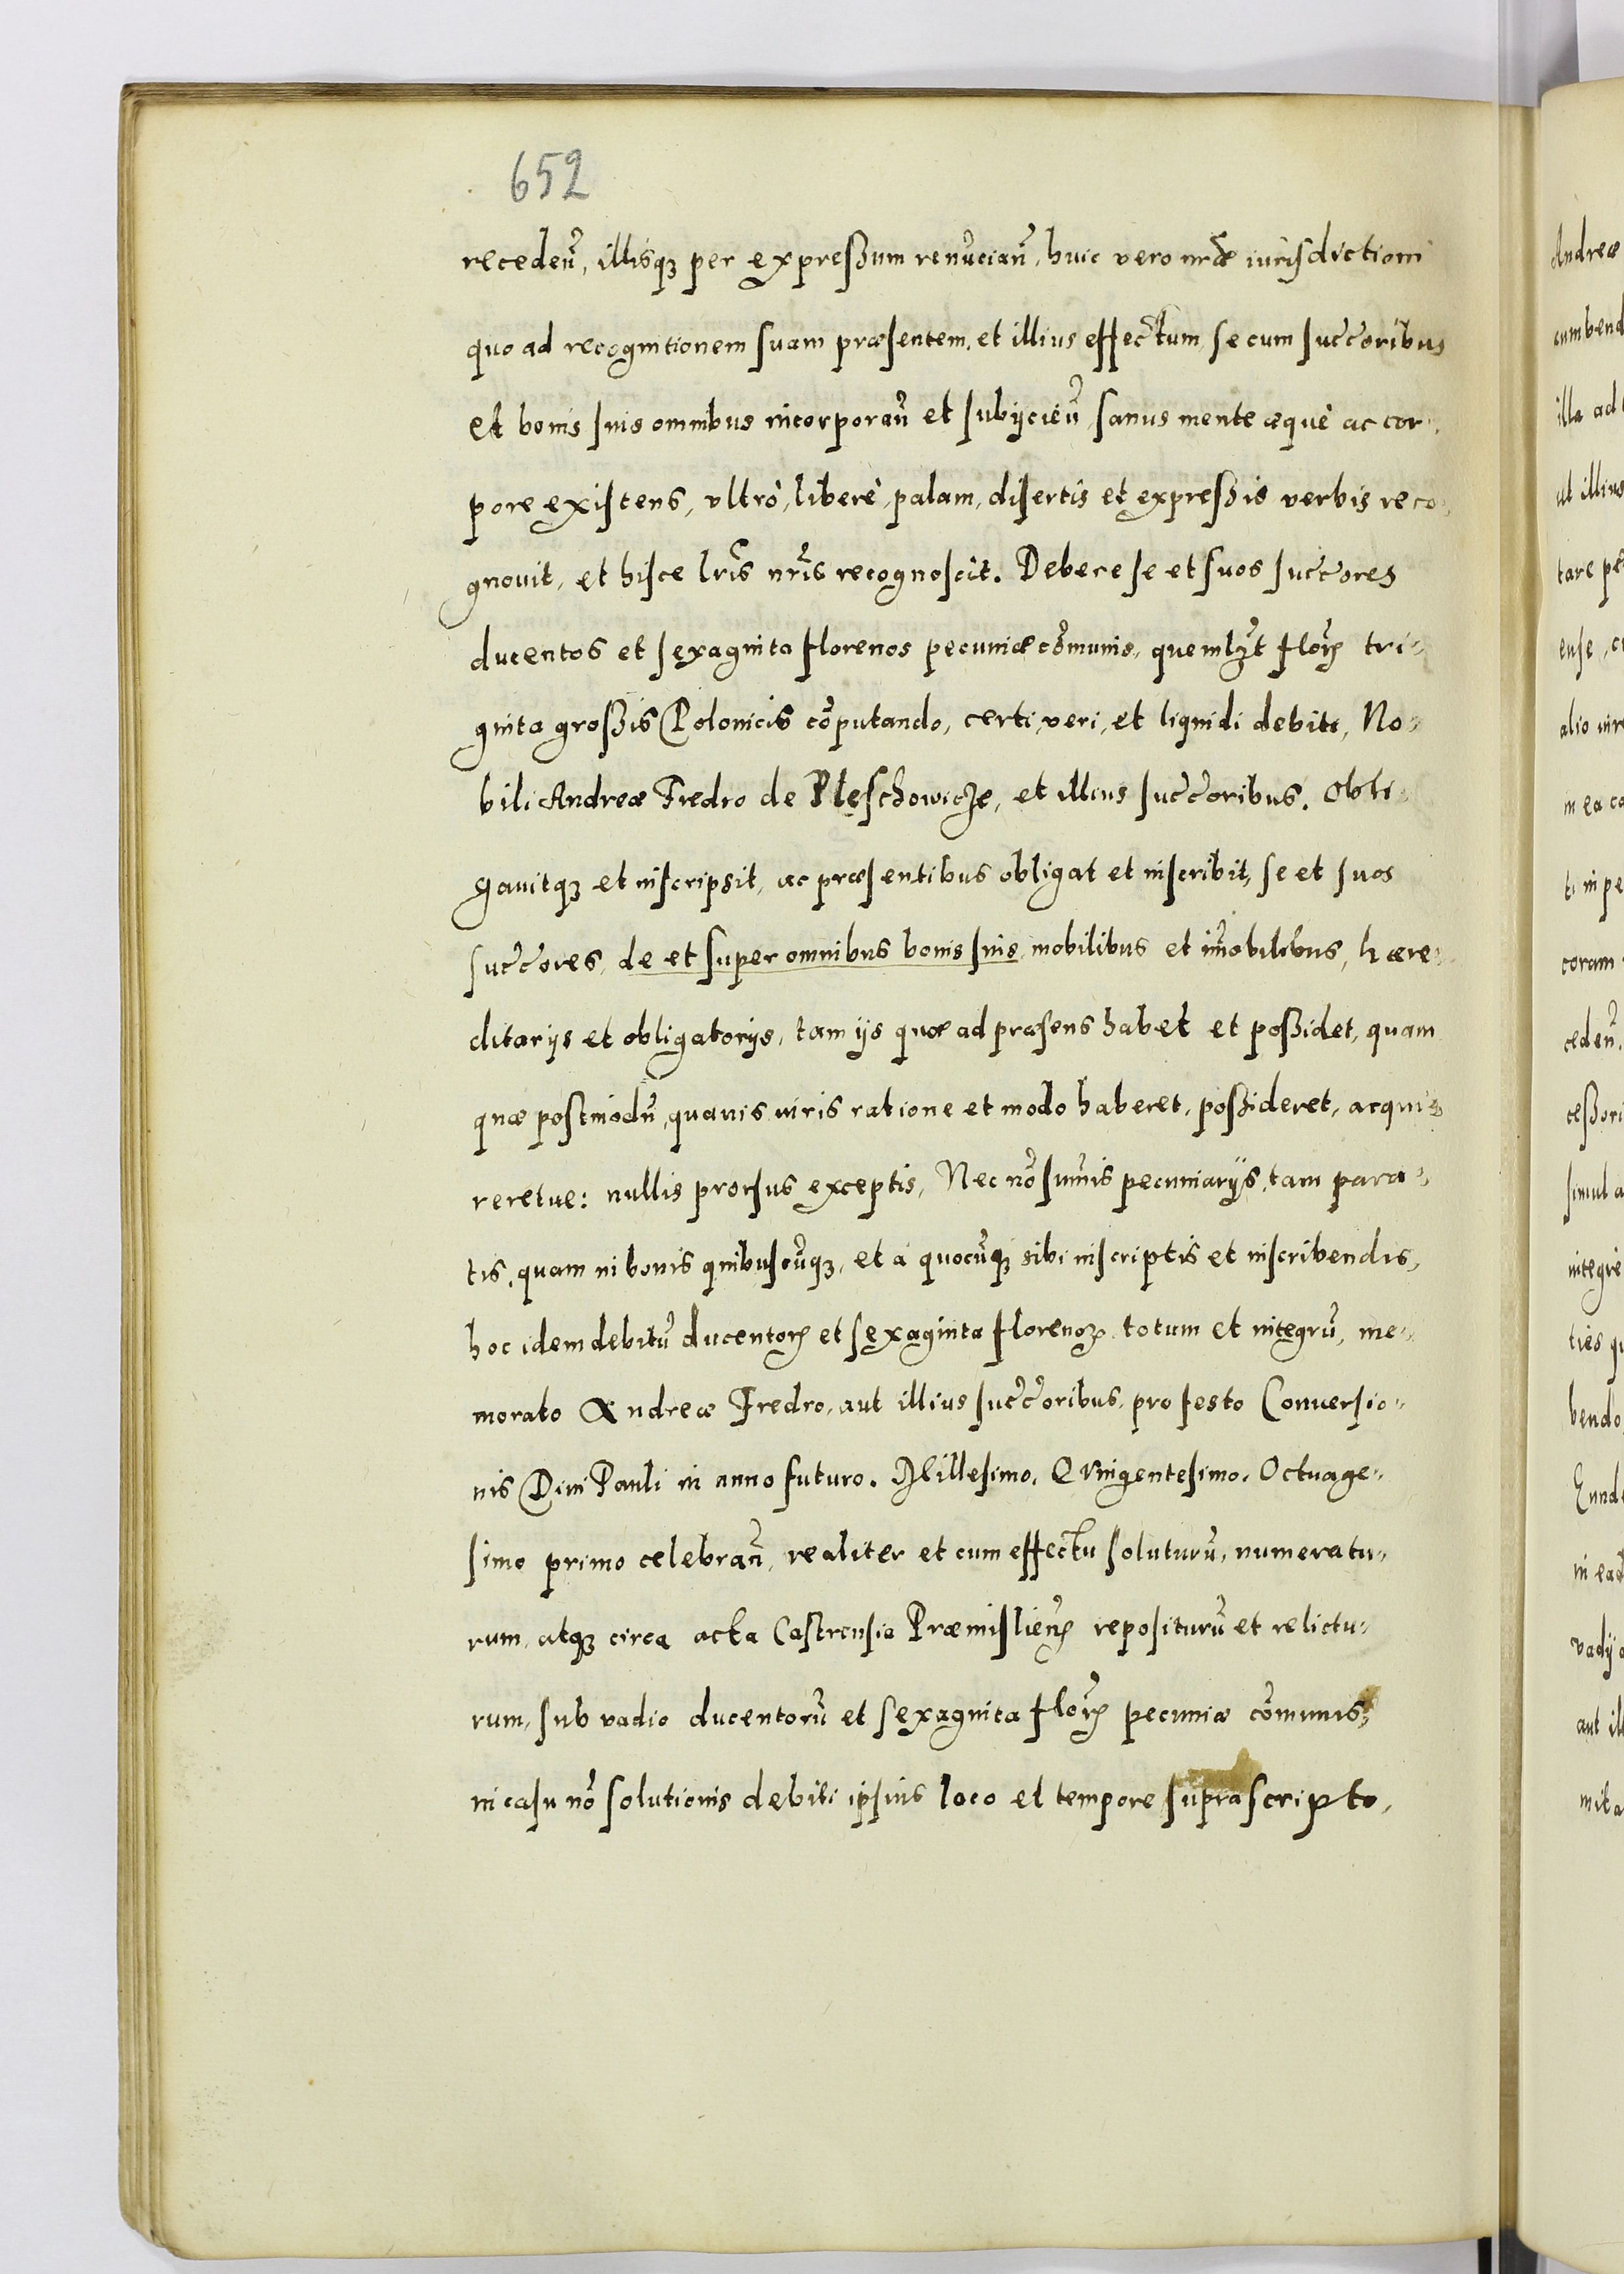 652
recedeñ, illisqꝫ per expreßum renũciañ, huic vero nr̃æ iurisdictioni
quo ad recognitionem suam præsentem, et illius effectum, se cum succ̃oribus
et bonis suis omnibus incorporañ et subijcieñ, sanus mente æquè ac cor„
pore existens, vltrò, liberè, palam, disertis et expreßis verbis reco„
gnouit, et hisce lr̃is nr̃is recognoscit. Debere se et suos succ̃ores
ducentos et sexaginta florenos pecuniæ cõmunis, quemlꝫt flor̃ tri„
ginta großis Polonicis cõputando, certi, veri, et liquidi debiti, No„
bili Andreæ Fredro de Pleschowicze, et illius succ̃oribus. Obli„
gauitqꝫ et inscripsit, ac præsentibus obligat et inscribit, se et suos
succ̃ores, de et super omnibus bonis suis mobilibus et im̃obilibus, hære„
ditarijs et obligatorijs, tam ijs quæ ad præsens habet et poßidet, quam
quæ postmodũ, quauis iuris ratione et modo haberet, poßideret, acqui„
reretue: nullis prorsus exceptis, Nec nõ sum̃is pecuniarijs, tam para„
tis, quam in bonis quibuscũqꝫ, et à quocũqꝫ sibi inscriptis et inscribendis,
hoc idem debitũ ducentorꝝ et sexaginta florenoꝝ totum et integrũ, me„
morato Andreæ Fredro, aut illius succ̃oribus, pro festo Conuersio„
nis Diui Pauli in anno futuro. Millesimo, Quingentesimo, Octuage„
simo primo celebrañ, realiter et cum effectu soluturũ, numeratu„
rum, atqꝫ circa acta Castrensia Præmislieñ reposituru̅ et relictu„
rum, sub vadio ducentorũ et sexaginta flor̃ pecuniæ cõmunis,
in casu nõ solutionis debiti ipsius loco et tempore suprascripto,
Andreæ
cumbend
illa ad
ut illius
tare pe
ense, c
alio iure
in ea ca
ti in pe
coram
cedeñ,
ceßori
simul a
integre
ties qu
bendo
Eund
in ead
vadij
aut ill
mita